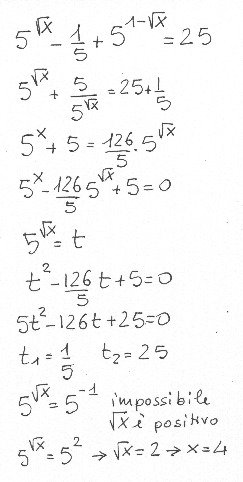 5^√x - 1/5 + 5^(1-√x) = 25
5^√x + 5/5^√x = 25 + 1/5
5^x + 5 = 126/5 · 5^√x
5^x - 126/5 5^√x + 5 = 0
5^√x = t
t² - 126/5 t + 5 = 0
5t² - 126t + 25 = 0
t₁ = 1/5 t₂ = 25
5^√x = 5^-1 impossibile
√x è positivo
5^√x = 5² → √x = 2 → x = 4